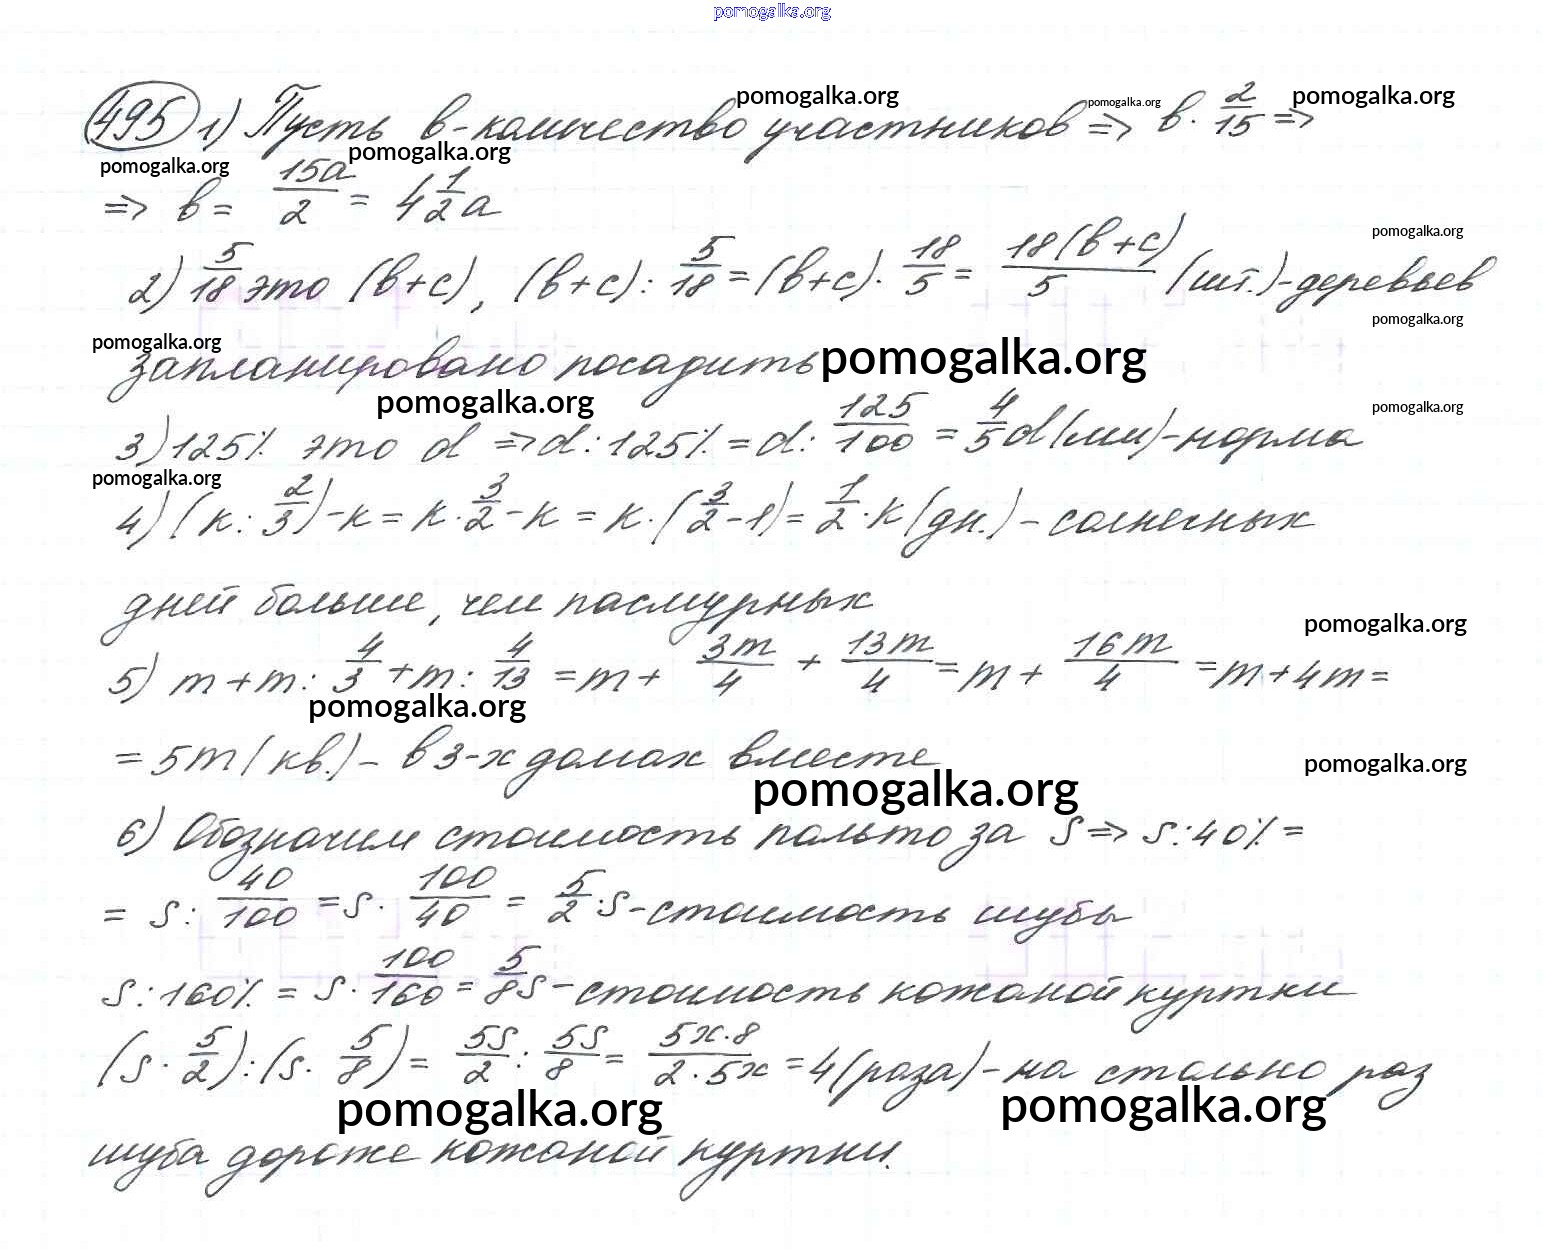 pomogalka.org
495 1) Пусть в-количество участников ⇒ в · 2/15 ⇒
pomogalka.org pomogalka.org pomogalka.org
pomogalka.org pomogalka.org
⇒ в = 15a/2 = 4 1/2 a
pomogalka.org
2) 5/18 это (в+с), (в+с) : 5/18 = (в+с) · 18/5 = 18(в+с)/5 (шт.)-деревьев
pomogalka.org
pomogalka.org
запланировано посадить
pomogalka.org
pomogalka.org
pomogalka.org
3) 125% это d ⇒ d : 125% = d : 125/100 = 4/5 d (мин)-норма
pomogalka.org
4) (к : 2/3) - к = к · 3/2 - к = к · (3/2 - 1) = 1/2 · к (дн.) - солнечных
дней больше, чем пасмурных
pomogalka.org
5) m + m : 4/3 + m : 4/13 = m + 3m/4 + 13m/4 = m + 16m/4 = m + 4m =
pomogalka.org
= 5m (кв.) - в 3-х домах вместе
pomogalka.org
pomogalka.org
6) Обозначим стоимость пальто за S ⇒ S : 40% =
= S : 40/100 = S · 100/40 = 5/2 · S - стоимость шубы
S : 160% = S · 100/160 = 5/8 S - стоимость кожаной куртки
(S · 5/2) : (S · 5/8) = 5S/2 : 5S/8 = 5x·8/2·5x = 4 (раза) - на столько раз
pomogalka.org pomogalka.org
шуба дороже кожаной куртки.